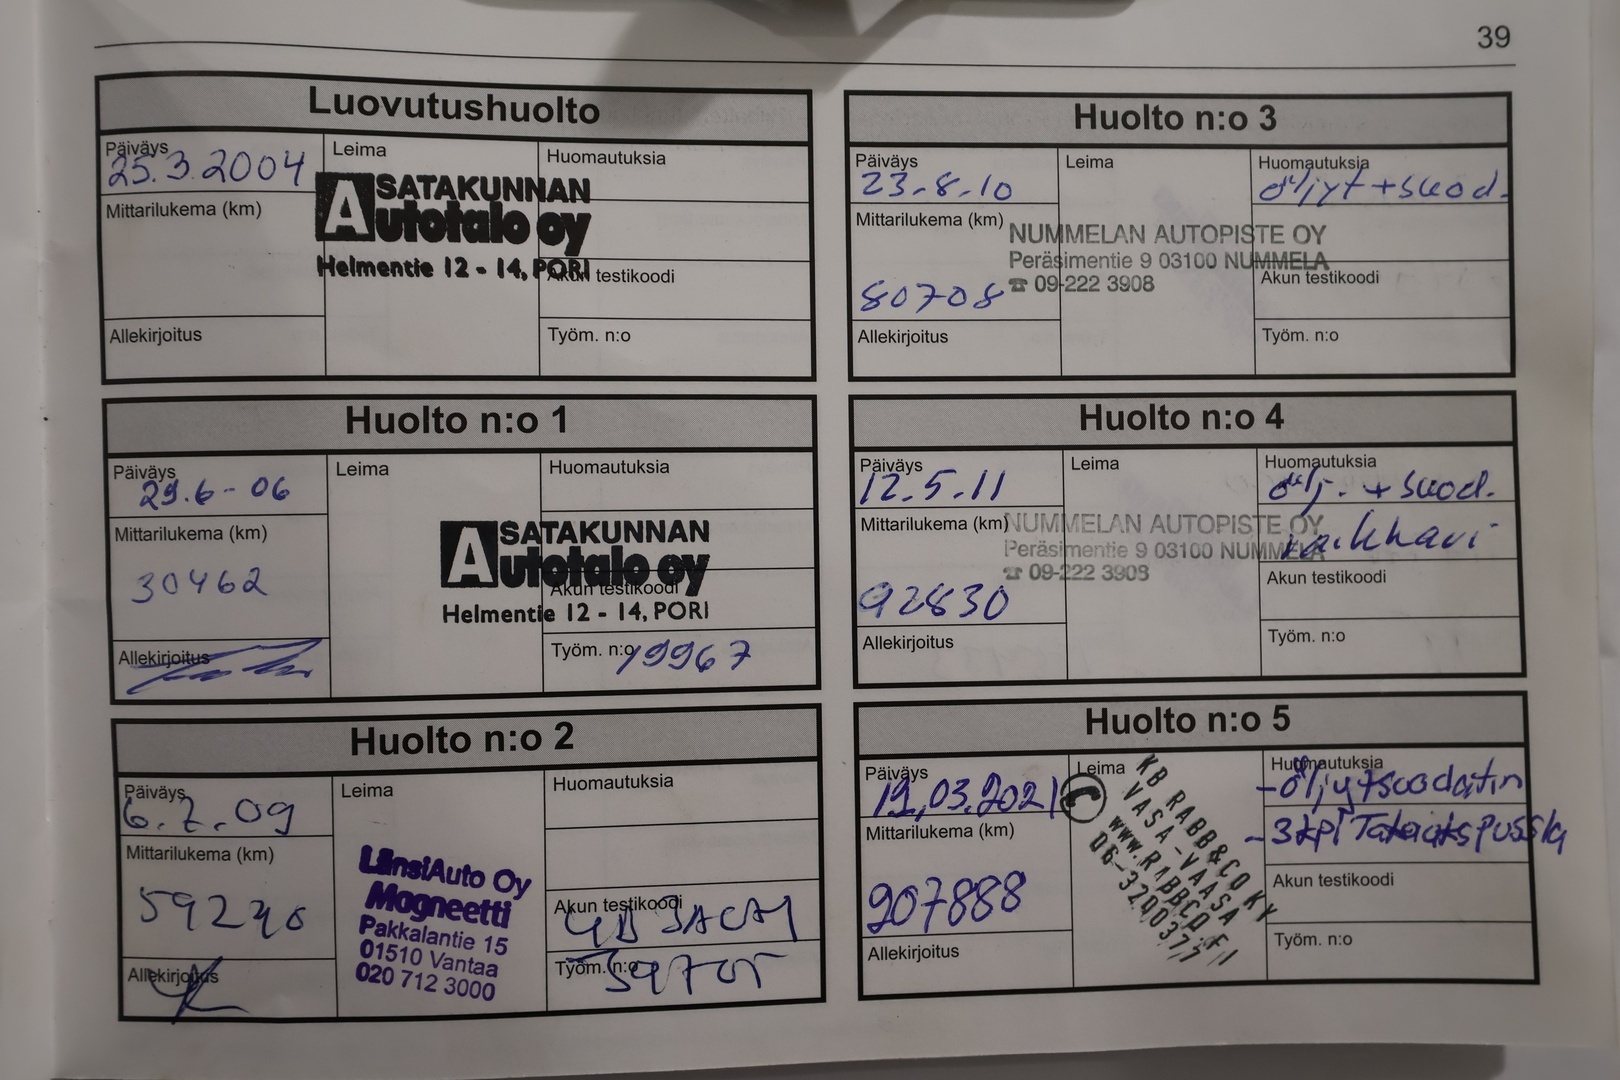 39
Luovutushuolto
Päiväys
25.3.2004
Mittarilukema (km)
Allekirjoitus
Leima
SATAKUNNAN
Autotalo oy
Helmentie 12 - 14, PORI
Huomautuksia
Akun testikoodi
Työm. n:o
Huolto n:o 1
Päiväys
29.6-06
Mittarilukema (km)
30462
Allekirjoitus
Leima
SATAKUNNAN
Autotalo oy
Helmentie 12 - 14, PORI
Huomautuksia
Akun testikoodi
Työm. n:o 19967
Huolto n:o 2
Päiväys
6.7.09
Mittarilukema (km)
Allekirjoitus
Leima
LänsiAuto Oy
Magneetti
Pakkalantie 15
01510 Vantaa
020 712 3000
Huomautuksia
Akun testikoodi
Työm. n:o
Huolto n:o 3
Päiväys
23-8-10
Mittarilukema (km)
80708
Allekirjoitus
Leima
NUMMELAN AUTOPISTE OY
Peräsimentie 9 03100 NUMMELA
☎ 09-222 3908
Huomautuksia
öljyt + suod.
Akun testikoodi
Työm. n:o
Huolto n:o 4
Päiväys
12.5.11
Mittarilukema (km)
92830
Allekirjoitus
Leima
NUMMELAN AUTOPISTE OY
Peräsimentie 9 03100 NUMMELA
☎ 09-222 3908
Huomautuksia
ölj. + suod.
Akun testikoodi
Työm. n:o
Huolto n:o 5
Päiväys
Mittarilukema (km)
207888
Allekirjoitus
Leima
KB RABB&CO KY
VASA-VAASA
www.RABBCO.FI
06-3200375
Huomautuksia
-öljyt+suodatin
-3kpl
Akun testikoodi
Työm. n:o